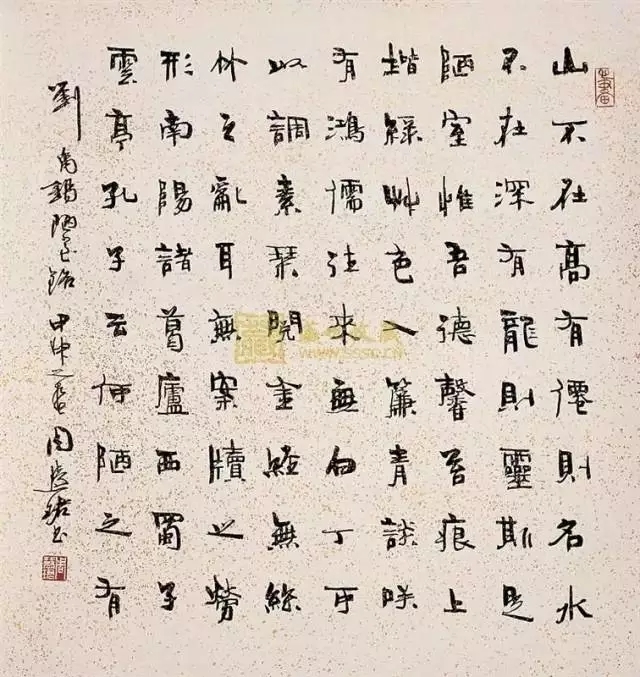 山不在高有僊則名水
不在深有龍則靈斯是
陋室惟吾德馨苔痕上
堦綠艸色入簾青談咲
有鴻儒往來無白丁可
以調素琹閱金經無絲
竹之亂耳無案牘之勞
形南陽諸葛廬西蜀子
雲亭孔子云何陋之有
劉禹錫陋室銘 甲申之春 周慧珺書
WWW.SSSC.CN